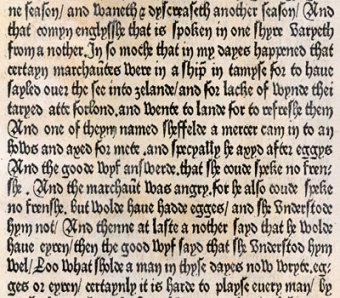 ne season/ and waneth & dyscreaseth another season/ And
that comyn englysshe that is spoken in one shyre varyeth
from a nother. In so moche that in my dayes happened that
certayn marchaūtes were in a ship̄ in tamyse for to haue
sayled ouer the see into zelande/ and for lacke of wynde thei
taryed atte forlond. and wente to lande for to refreshe them
And one of theym named sheffelde a mercer cam in to an
hows and axed for mete. and specyally he axyd after eggys
And the goode wyf answerde. that she coude speke no fren-
she. And the marchaūt was angry. for he also coude speke
no frenshe. but wolde haue hadde egges/ and she vnderstod
hym not/ And thenne at laste a nother sayd that he wolde
haue eyren/ then the good wyf sayd that she vnderstod hym
wel/ Loo what sholde a man in thyse dayes now wryte. eg-
ges or eyren/ certaynly it is harde to playse euery man/ by